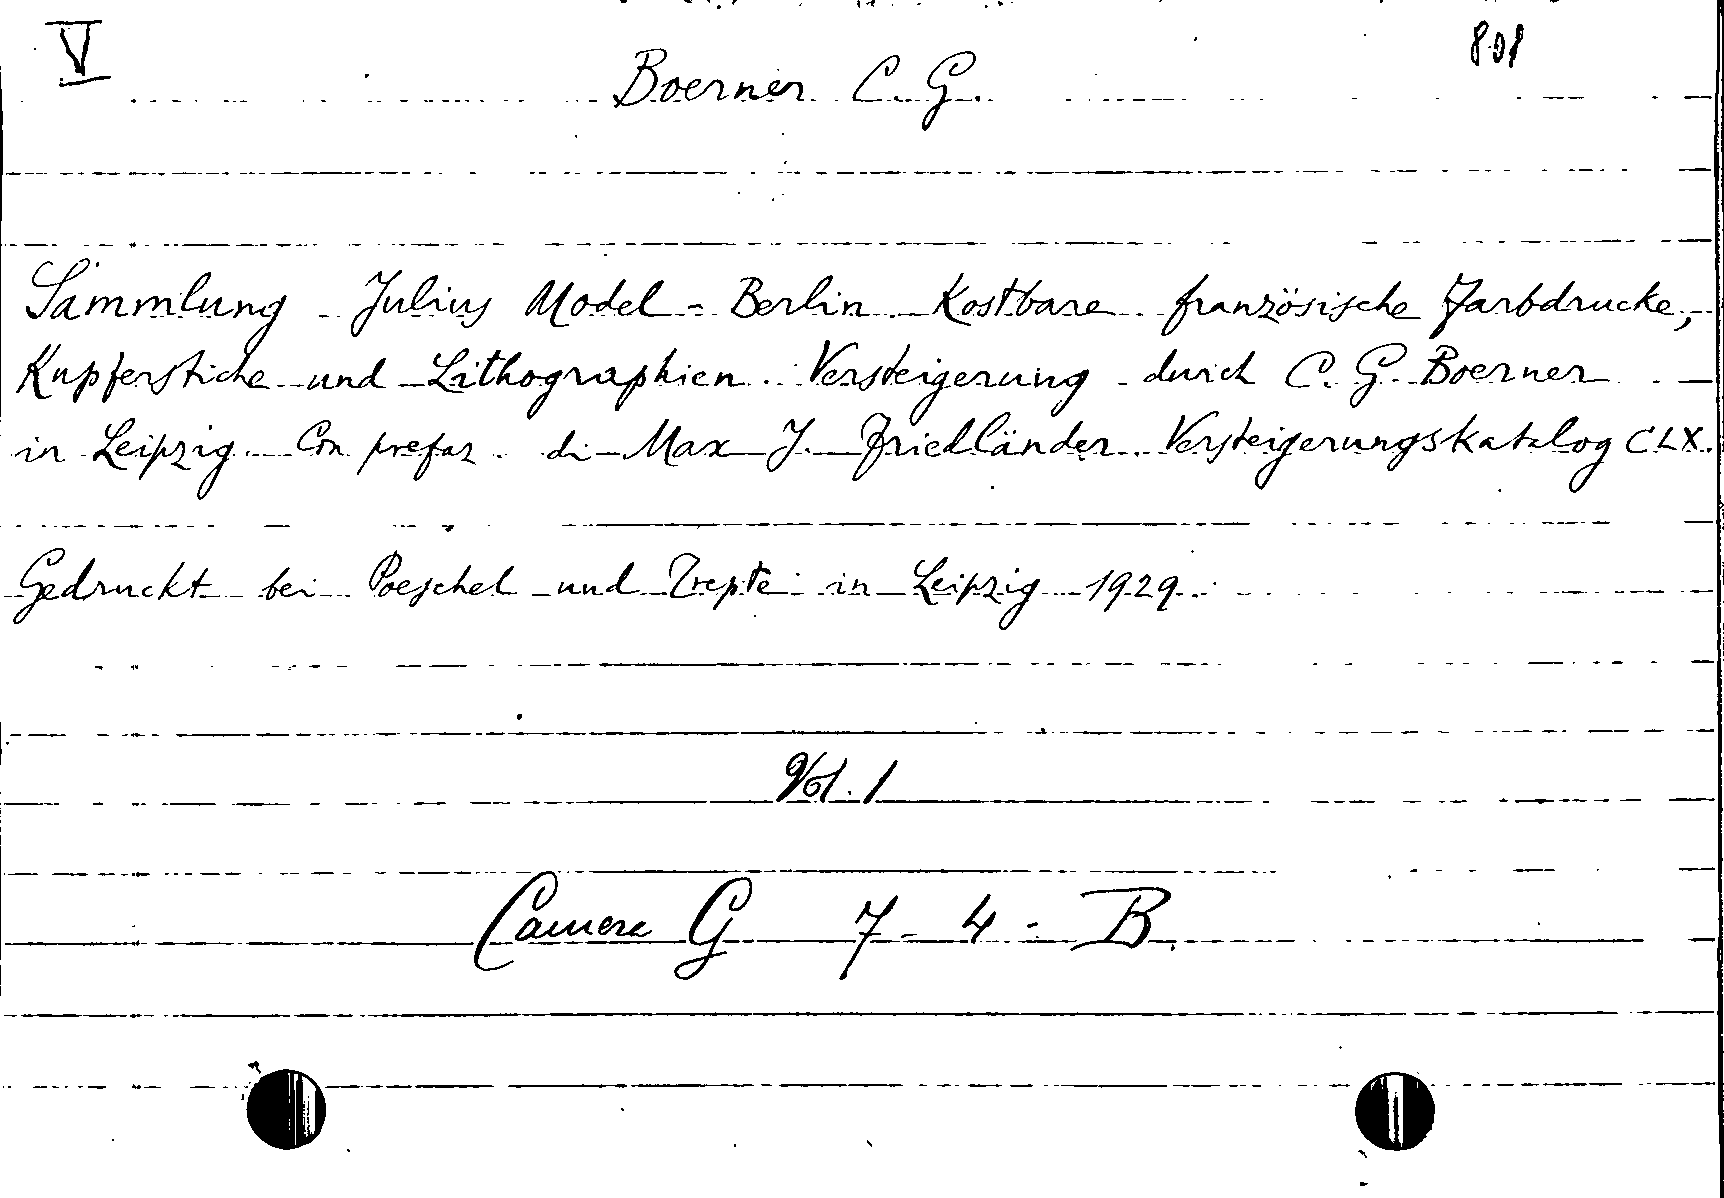 V
801
Boerner C. G.
Sammlung Julius Model - Berlin Kostbare französische Farbdrucke,
Kupferstiche und Lithographien. Versteigerung durch C. G. Boerner
in Leipzig. Con prefaz. di Max J. Friedländer. Versteigerungskatalog CLX.
Gedruckt bei Poeschel und Trepte in Leipzig 1929.
Vol. 1
Camera G 7 - 4 - B.